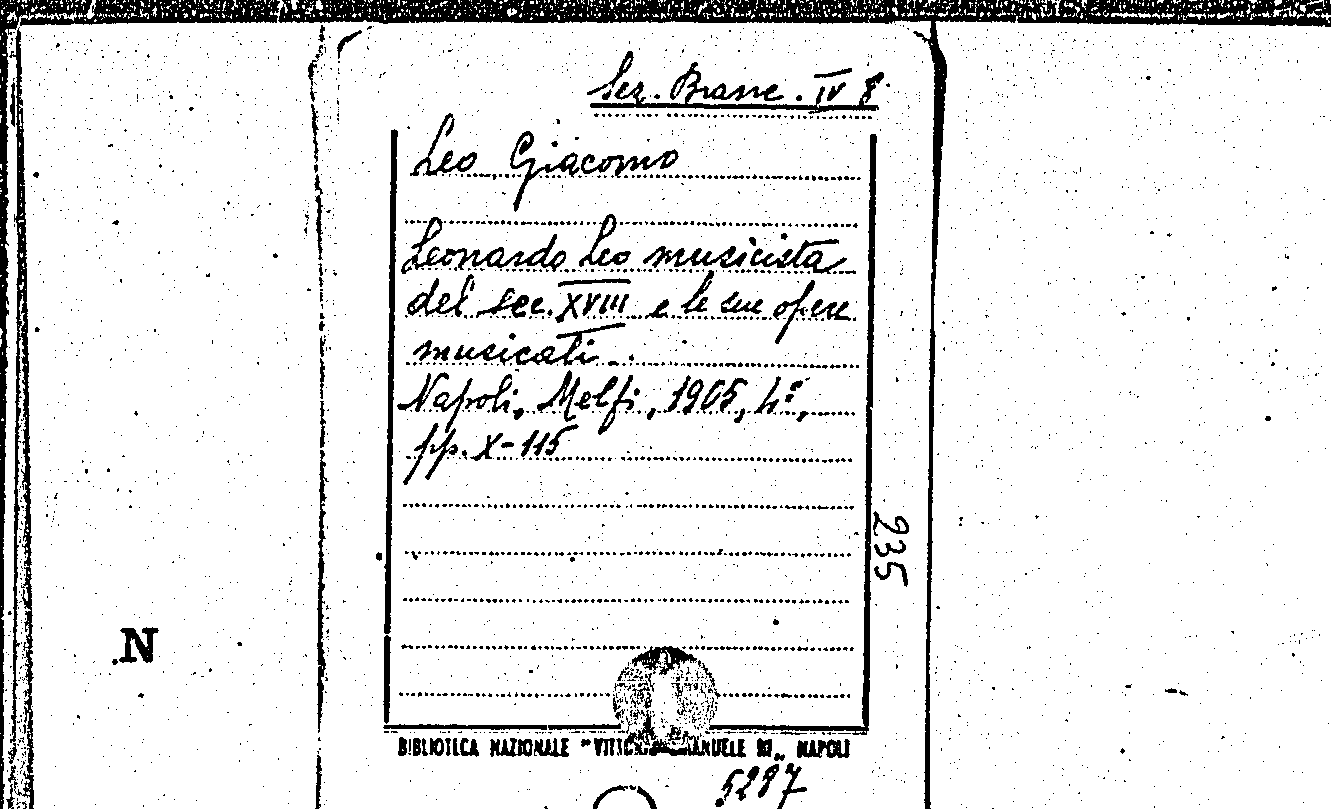 Sez. Branc. IV 8
Leo Giacomo
Leonardo Leo musicista
del sec. XVIII e le sue opere
musicati.
Napoli, Melfi, 1905, 4º,
pp. X-115
235
N
BIBLIOTECA NAZIONALE "VITTORIO EMANUELE III„ NAPOLI
5287